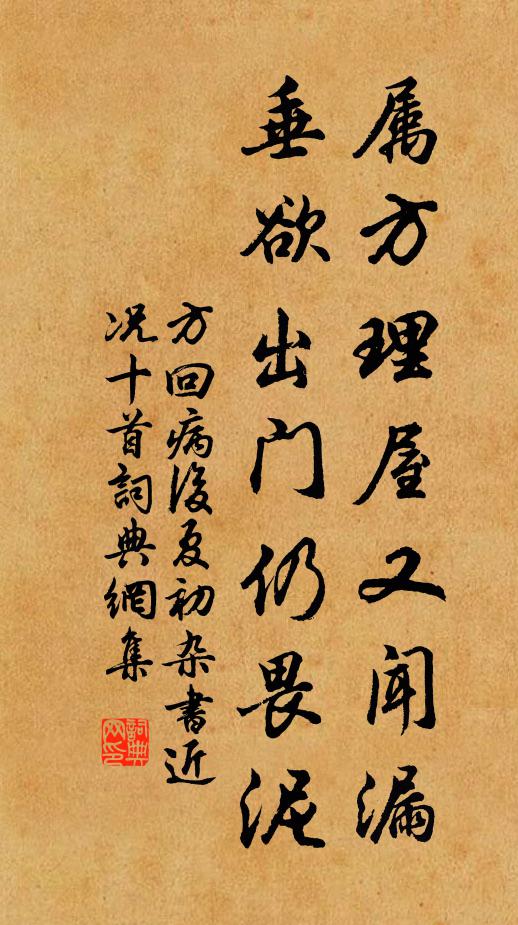 属方理屋又闻漏
垂欲出门仍畏泥
方回病後夏初杂書近
况十首詞典網集
詞典
网印